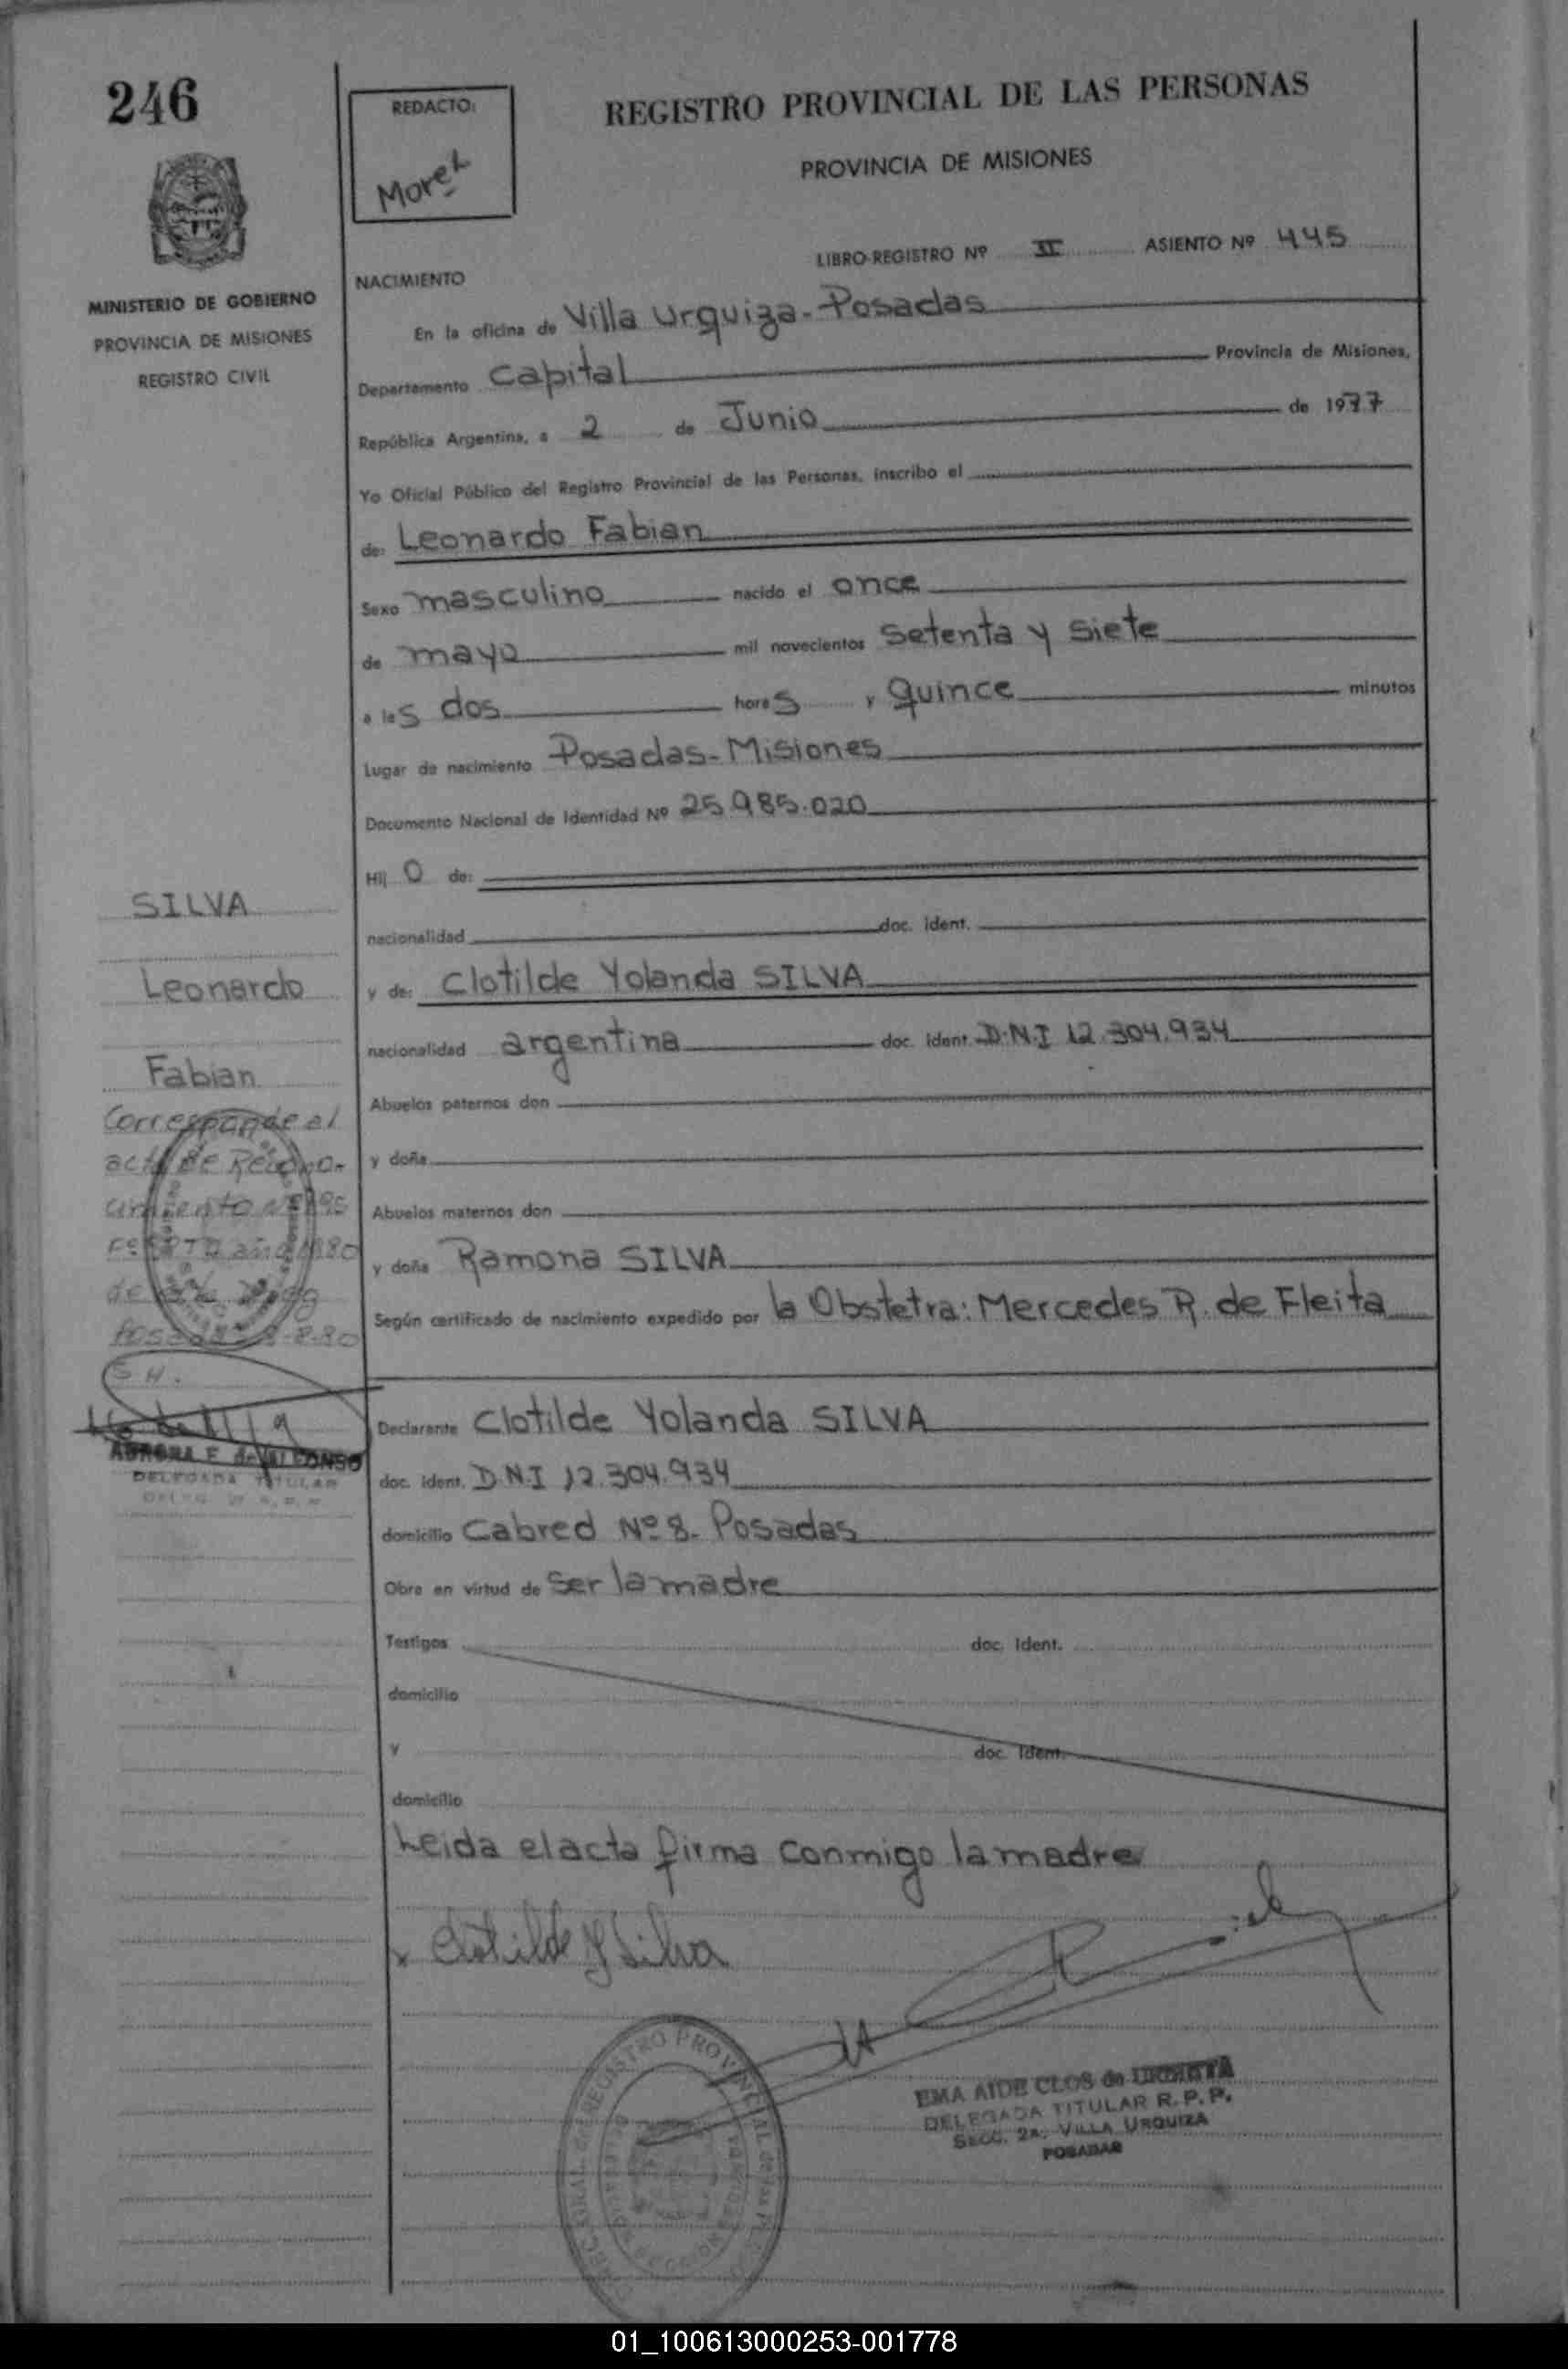 246
REDACTO:
Morel
REGISTRO PROVINCIAL DE LAS PERSONAS
PROVINCIA DE MISIONES
MINISTERIO DE GOBIERNO
PROVINCIA DE MISIONES
REGISTRO CIVIL
LIBRO-REGISTRO Nº II ASIENTO Nº 445
NACIMIENTO
En la oficina de Villa Urquiza-Posadas
Departamento Capital Provincia de Misiones,
República Argentina, a 2 de Junio de 1977
Yo Oficial Público del Registro Provincial de las Personas, inscribo el
de: Leonardo Fabian
Sexo masculino nacido el once
de mayo mil novecientos setenta y siete
a las dos horas y quince minutos
Lugar de nacimiento Posadas-Misiones
Documento Nacional de Identidad Nº 25.985.020
Hijo de:
nacionalidad doc. ident.
y de: Clotilde Yolanda SILVA
nacionalidad argentina doc. ident. D.N.I 12.304.934
Abuelos paternos don
y doña
Abuelos maternos don
y doña Ramona SILVA
Según certificado de nacimiento expedido por la Obstetra: Mercedes R. de Fleita
Declarante Clotilde Yolanda SILVA
doc. ident. D.N.I 12.304.934
domicilio Cabred Nº 8. Posadas
Obra en virtud de ser la madre
Testigos doc. ident.
domicilio
y doc. ident.
domicilio
Leida el acta firma conmigo la madre
Clotilde Y Silva
EMA AIDE CLOS de
DELEGADA TITULAR R.P.P.
SECC. 2a. VILLA URQUIZA
POSADAS
REGISTRO PROVINCIAL de las
SILVA
Leonardo
Fabian
Corresponde al
acta de Recono-
cimiento
de
S.H.
AURORA F. de
DELEGADA TITULAR
01_100613000253-001778